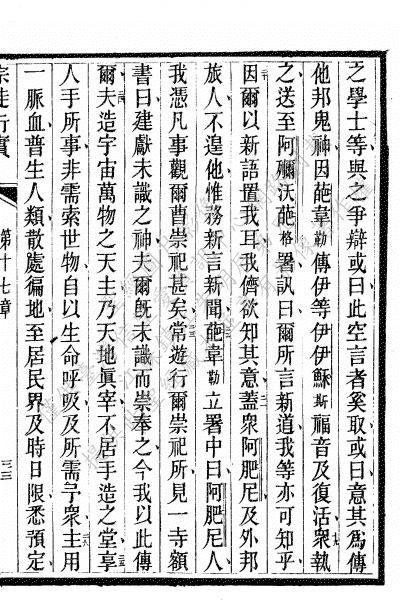 之學士等與之爭辯或曰此空言者奚取或曰意其爲傳
他邦鬼神因葩韋勒傳伊等伊伊穌斯福音及復活衆執
之送至阿嘞沃葩格署訊曰爾所言新道我等亦可知乎
因爾以新語置我耳我儕欲知其意蓋衆阿肥尼及外邦
旅人不遑他惟務新言新聞葩韋勒立署中曰阿肥尼人
我憑凡事觀爾酋崇祀甚矣常遊行爾崇祀所見一寺額
書曰建獻未識之神夫爾旣未識而崇奉之今我以此傳
爾夫造宇宙萬物之天主乃天地眞宰不居手造之堂享
人手所事非需索世物自以生命呼吸及所需予衆主用
一脈血普生人類散處徧地至居民界及時日限悉預定
宗徒行實
第十七章